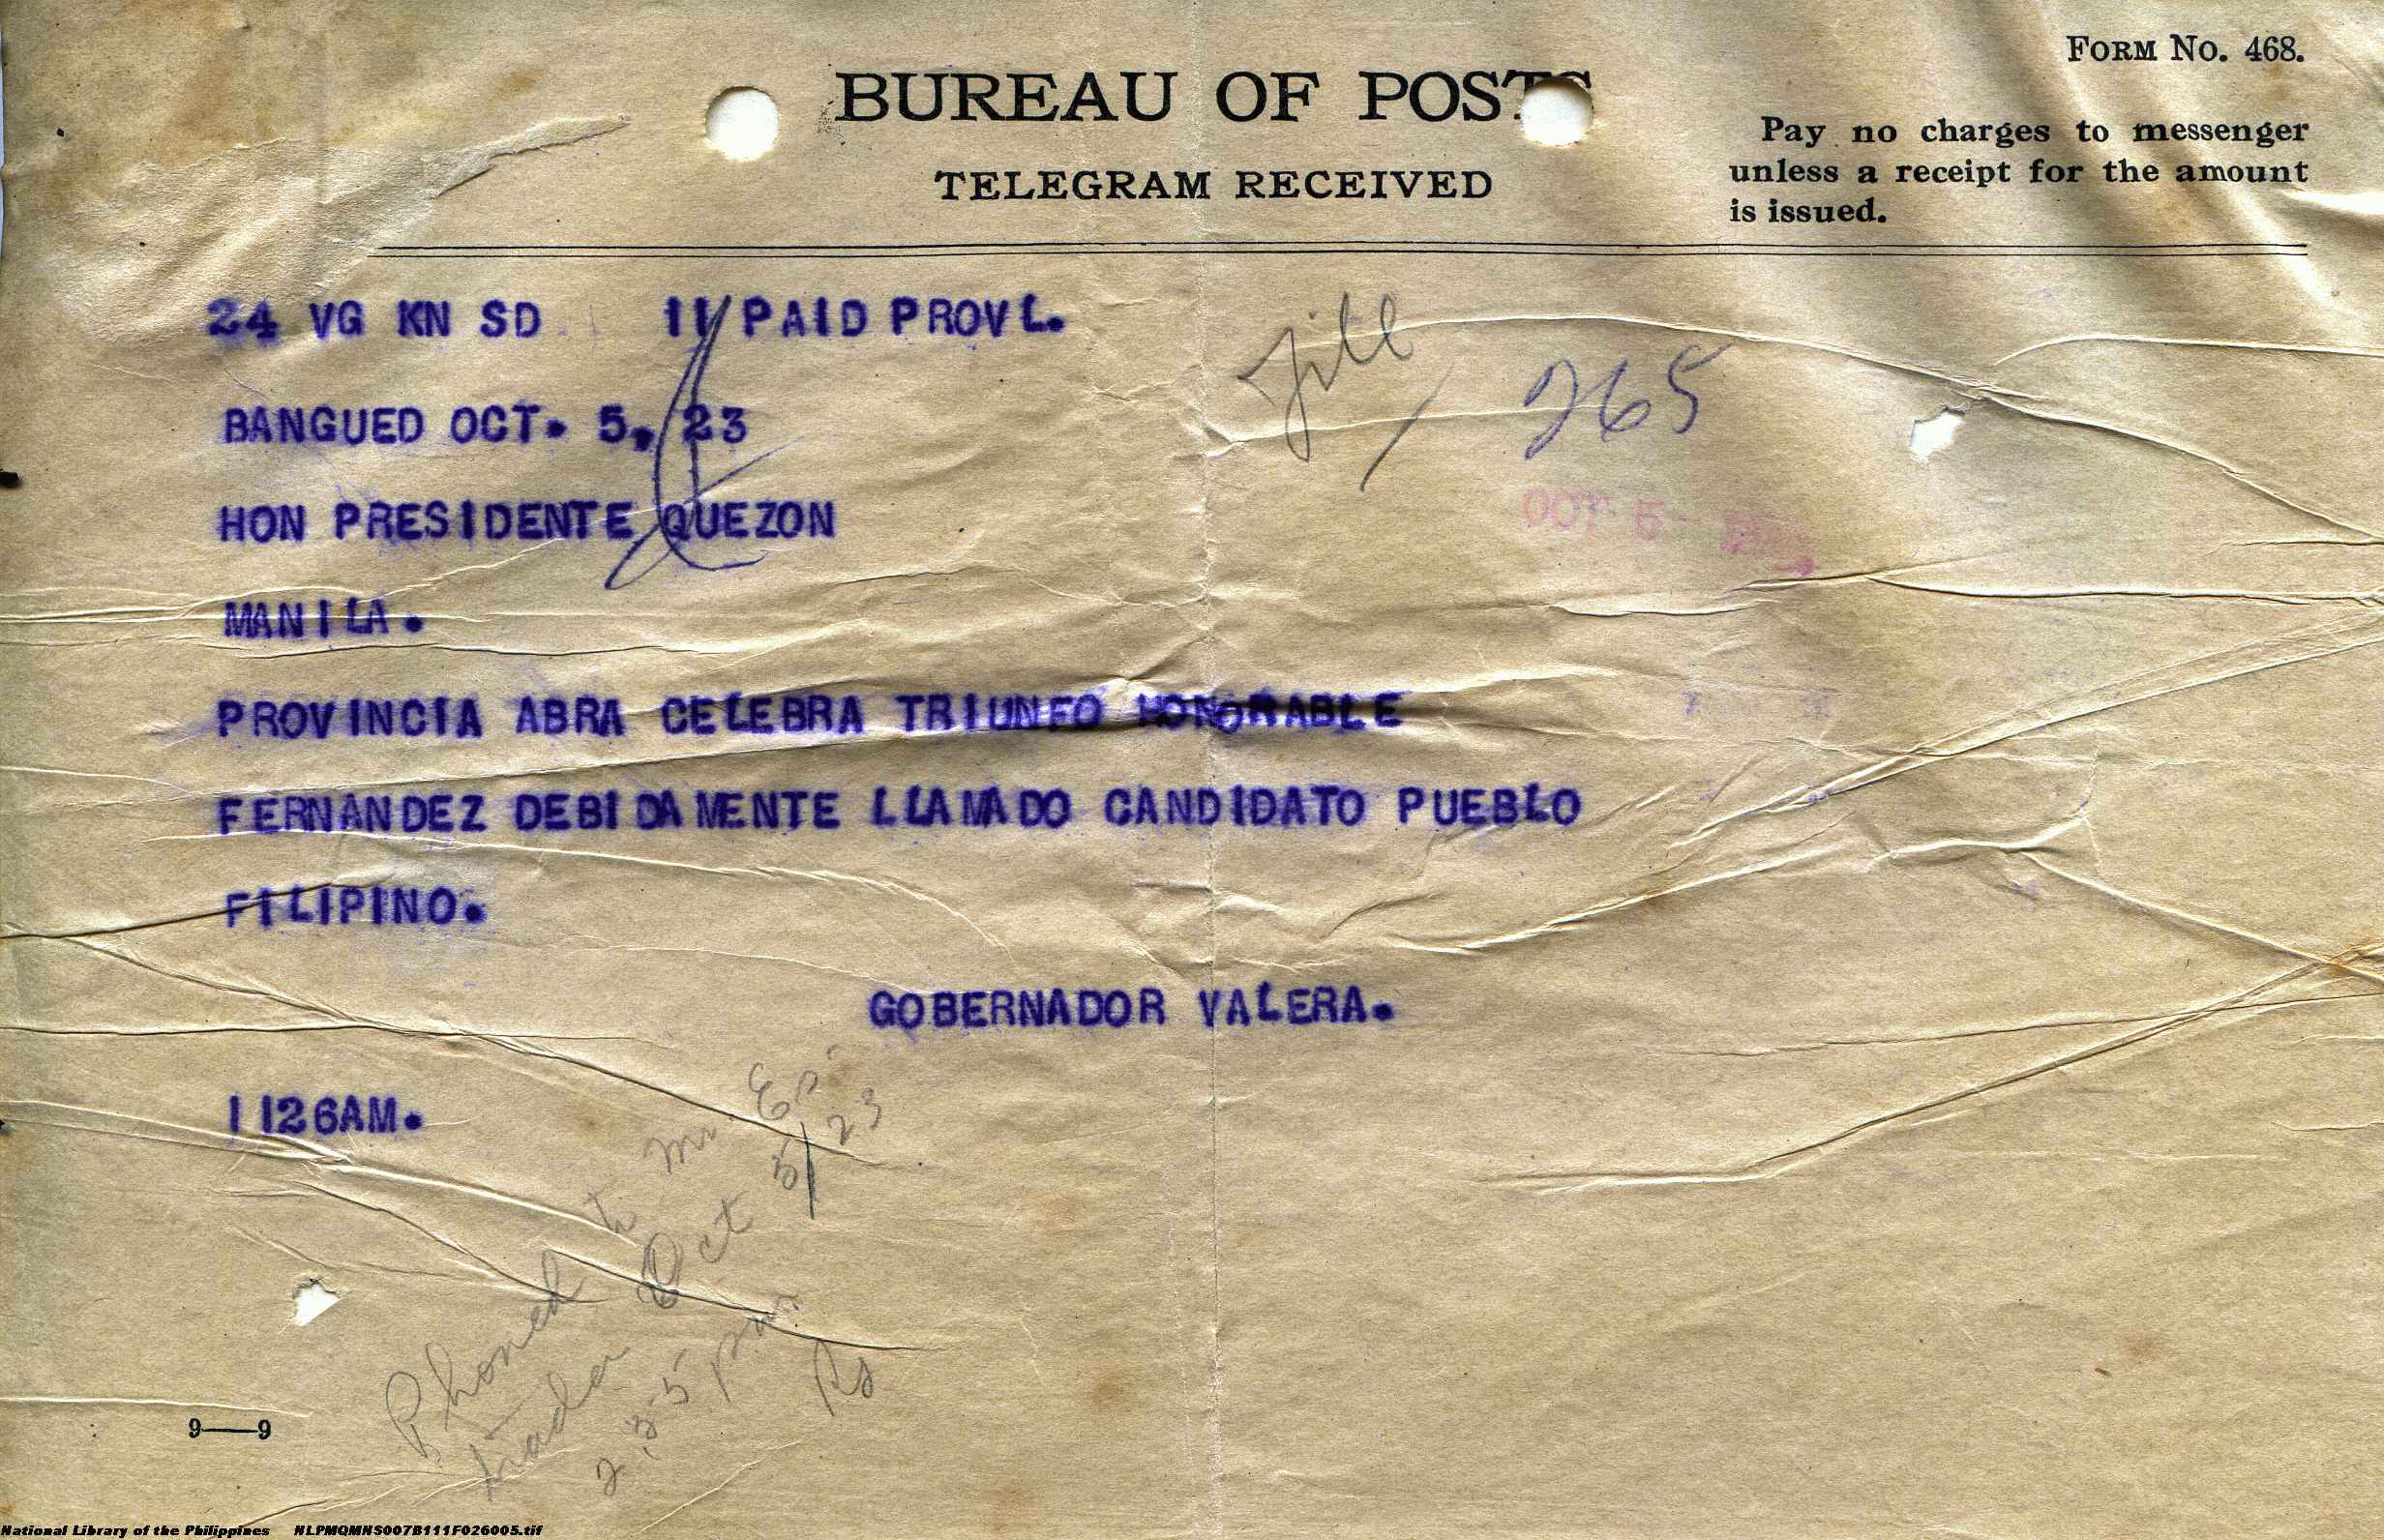 FORM No. 468.
BUREAU OF POSTS
TELEGRAM RECEIVED
Pay no charges to messenger
unless a receipt for the amount
is issued.
24 VG KN SD 11 PAID PROVL.
265
BANGUED OCT. 5, 23
HON PRESIDENTE QUEZON
OCT 5-
MANILA.
PROVINCIA ABRA CELEBRA TRIUNFO HONORABLE
FERNANDEZ DEBIDAMENTE LLAMADO CANDIDATO PUEBLO
FILIPINO.
GOBERNADOR VALERA.
1126AM.
Phoned to Mr.
Oct 5/23
2,35 pm.
9—9
National Library of the Philippines NLPMQMNS007B111F026005.tif